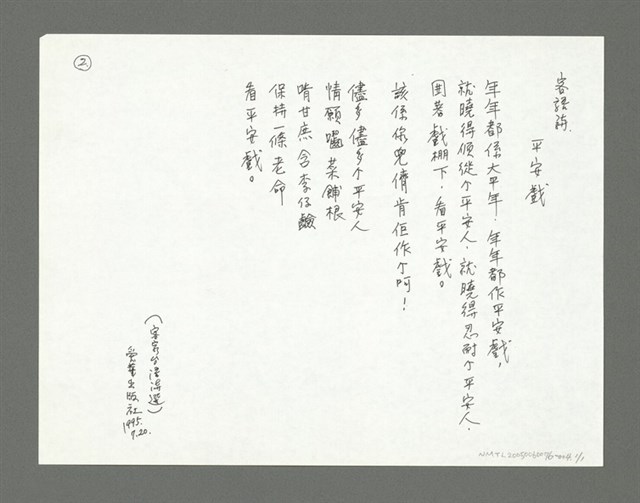 ②
客語詩
平安戲
年年都係大平年．年年都作平安戲，
就曉得順從个平安人．就曉得忍耐个平安人．
圍著戲棚下．看平安戲。
該係你兜儕肯佢作个呵！
儘多儘多个平安人
情願嚙菜餔根
啃甘庶含李仔鹼
保持一條老命
看平安戲。
愛華出版社
1995.
9.20.